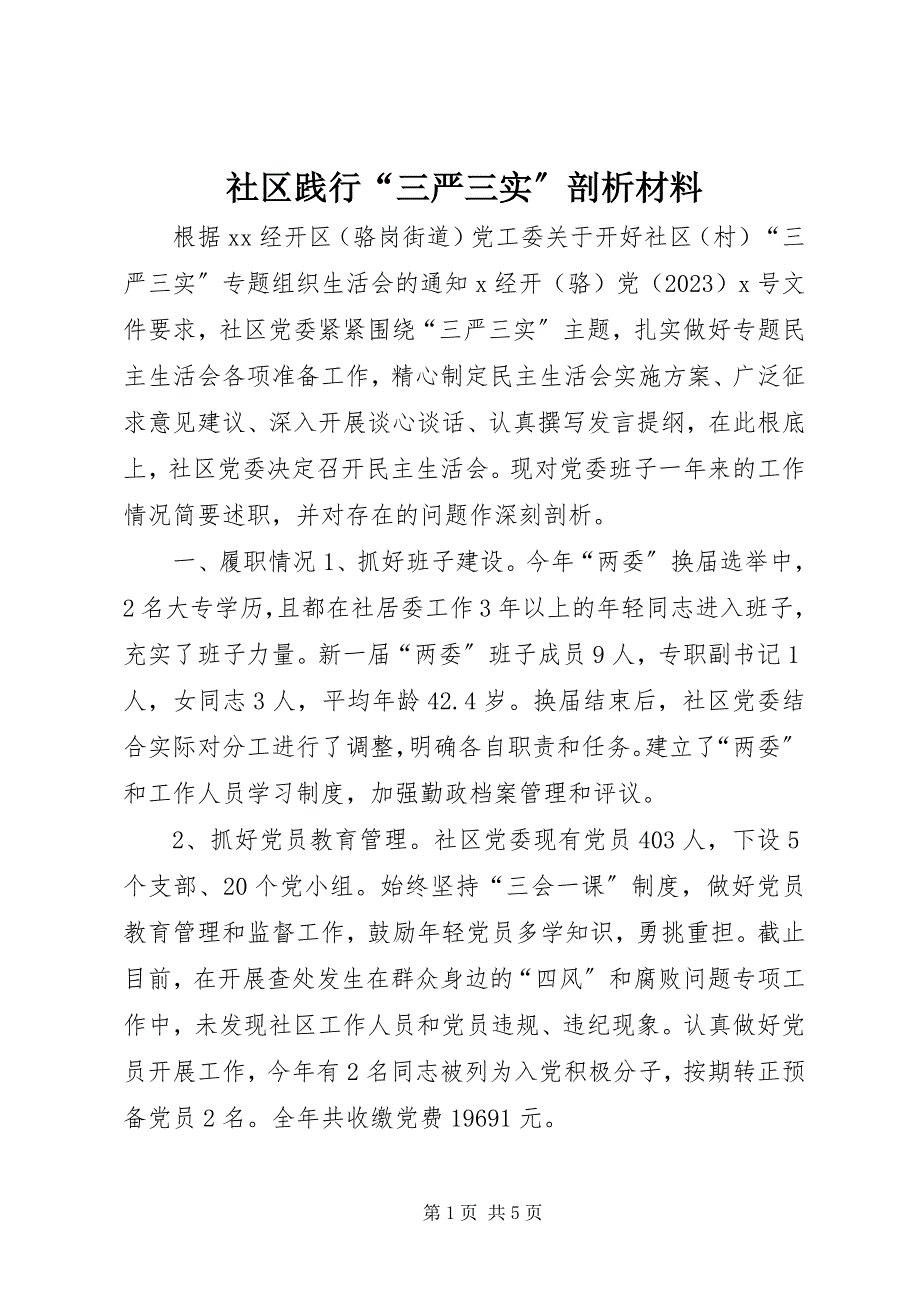 社区践行“三严三实〞剖析材料
根据 xx 经开区（骆岗街道）党工委关于开好社区（村）“三
严三实〞专题组织生活会的通知 x 经开（骆）党（2023）x 号文
件要求，社区党委紧紧围绕“三严三实〞主题，扎实做好专题民
主生活会各项准备工作，精心制定民主生活会实施方案、广泛征
求意见建议、深入开展谈心谈话、认真撰写发言提纲，在此根底
上，社区党委决定召开民主生活会。现对党委班子一年来的工作
情况简要述职，并对存在的问题作深刻剖析。
一、履职情况 1、抓好班子建设。今年“两委〞换届选举中，
2 名大专学历，且都在社居委工作 3 年以上的年轻同志进入班子，
充实了班子力量。新一届“两委〞班子成员 9 人，专职副书记 1
人，女同志 3 人，平均年龄 42.4 岁。换届结束后，社区党委结
合实际对分工进行了调整，明确各自职责和任务。建立了“两委〞
和工作人员学习制度，加强勤政档案管理和评议。
2、抓好党员教育管理。社区党委现有党员 403 人，下设 5
个支部、20 个党小组。始终坚持“三会一课〞制度，做好党员
教育管理和监督工作，鼓励年轻党员多学知识，勇挑重担。截止
目前，在开展查处发生在群众身边的“四风〞和腐败问题专项工
作中，未发现社区工作人员和党员违规、违纪现象。认真做好党
员开展工作，今年有 2 名同志被列为入党积极分子，按期转正预
备党员 2 名。全年共收缴党费 19691 元。
第 1 页 共 5 页